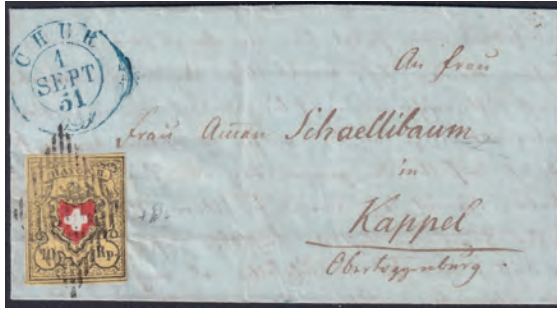 CHUR
1
SEPT
51
An Frau
Frau Amman Schaellibaum
in
Kappel
Obertoggenburg
RAYON II
10 Rp.